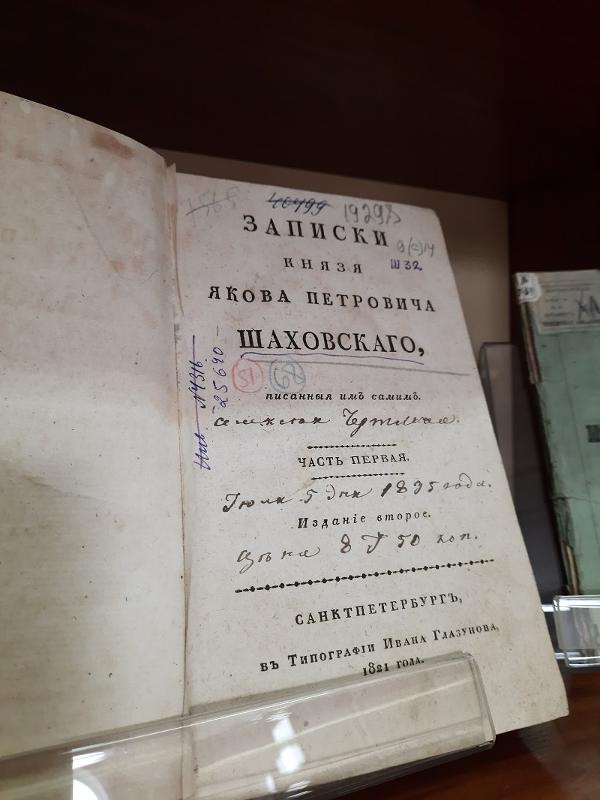 1568
40499
19297
9(с)14
Ш32
ЗАПИСКИ
КНЯЗЯ
ЯКОВА ПЕТРОВИЧА
ШАХОВСКАГО,
51
68
25690-
писанныя имъ самимъ.
ЧАСТЬ ПЕРВАЯ.
Іюля 5 дня 1835 года.
Изданіе второе.
Цѣна 8 50 коп.
САНКТПЕТЕРБУРГЪ,
въ Типографіи Ивана Глазунова,
1821 года.